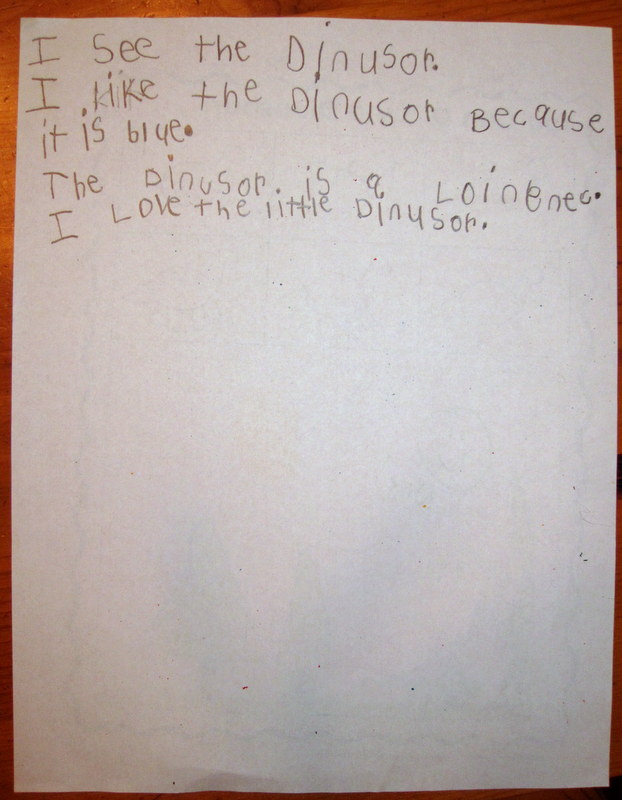 I See the Dinusor.
I like the Dinusor Because
it is blue.
The Dinusor. is a Loingnec.
I Love the little Dinusor.